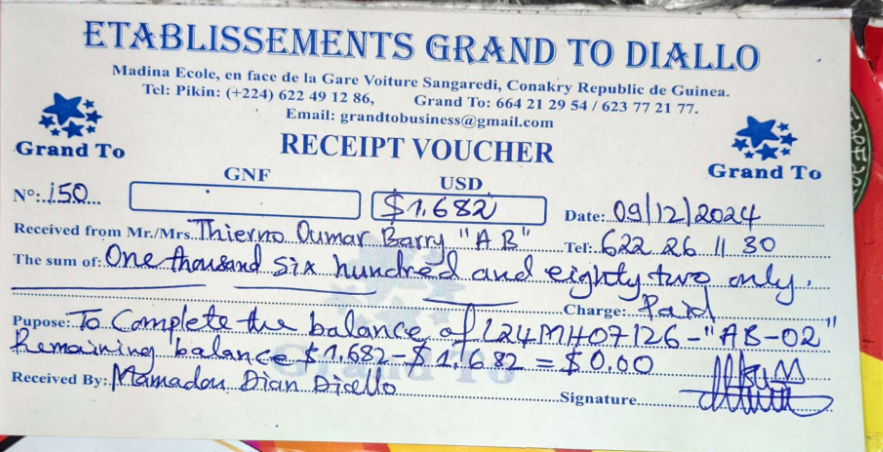 ETABLISSEMENTS GRAND TO DIALLO
Madina Ecole, en face de la Gare Voiture Sangaredi, Conakry Republic de Guinea.
Tel: Pikin: (+224) 622 49 12 86, Grand To: 664 21 29 54 / 623 77 21 77.
Email: grandtobusiness@gmail.com
Grand To RECEIPT VOUCHER Grand To
GNF USD
N°: 150 $1.682 Date: 09/12/2024
Received from Mr./Mrs. Thierno Oumar Barry "AB" Tel: 622 26 11 30
The sum of: One thousand six hundred and eighty two only.
Charge: Paid
Pupose: To Complete the balance of L24MH07126-"AB-02"
Remaining balance $1.682-$1.682 = $0.00
Grand To
Received By: Mamadou Dian Diallo Signature